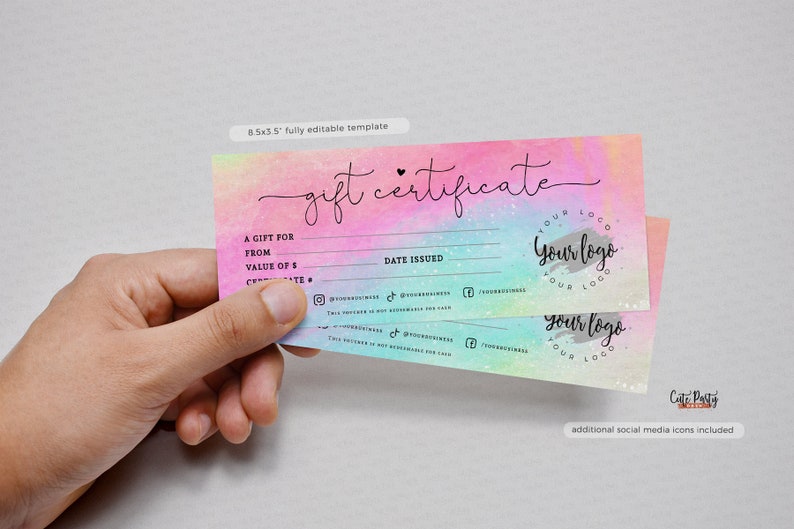 8.5x3.5" fully editable template
gift certificate
A GIFT FOR
FROM
VALUE OF $ DATE ISSUED
CERTIFICATE #
@YOURBUSINESS @YOURBUSINESS /YOURBUSINESS
THIS VOUCHER IS NOT REDEEMABLE FOR CASH
YOUR LOGO
Your logo
YOUR LOGO
@YOURBUSINESS @YOURBUSINESS /YOURBUSINESS
THIS VOUCHER IS NOT REDEEMABLE FOR CASH
Your logo
YOUR LOGO
Cute Party
additional social media icons included